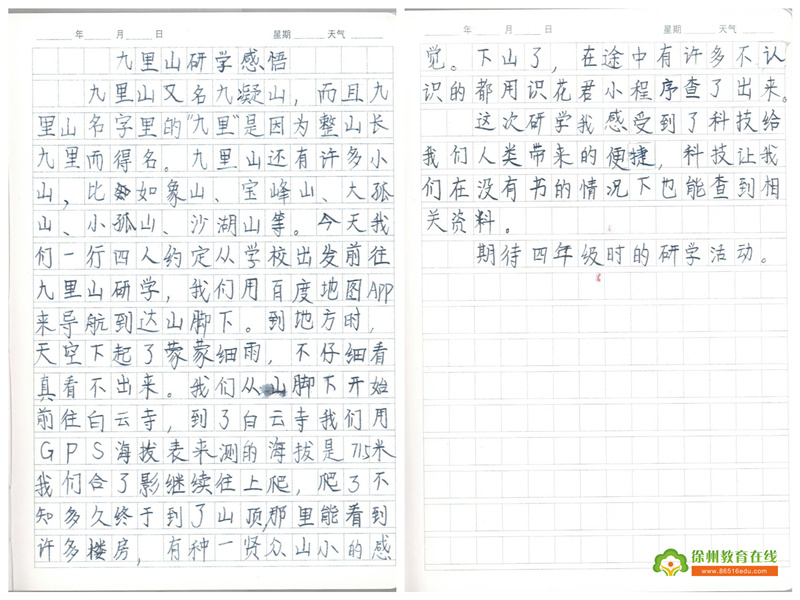 年 月 日 星期 天气
九里山研学感悟
九里山又名九凝山，而且九
里山名字里的"九里"是因为整山长
九里而得名。九里山还有许多小
山，比如象山、宝峰山、大孤
山、小孤山、沙湖山等。今天我
们一行四人约定从学校出发前往
九里山研学，我们用百度地图APP
来导航到达山脚下。到地方时，
天空下起了蒙蒙细雨，不仔细看
真看不出来。我们从山脚下开始
前往白云寺，到了白云寺我们用
GPS海拔表来测的海拔是715米
我们合了影继续往上爬，爬了不
知多久终于到了山顶，那里能看到
许多楼房，有种一贤众山小的感
年 月 日 星期 天气
觉。下山了，在途中有许多不认
识的都用识花君小程序查了出来。
这次研学我感受到了科技给
我们人类带来的便捷，科技让我
们在没有书的情况下也能查到相
关资料。
期待四年级时的研学活动。
徐州教育在线
www.86516edu.com